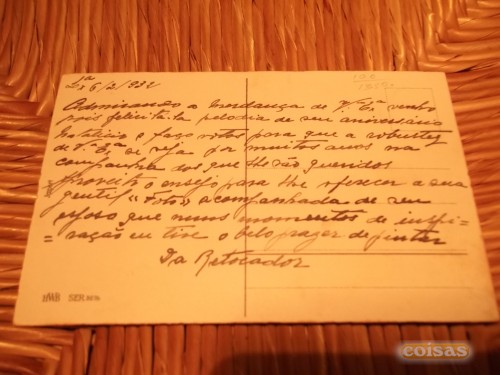 Lxª 6/2/932
Admirando a mudança de V. Exª venho
pois felicitá-la pelo dia de seu aniversário
Natalício e faço votos para que a robustez
de V. Exª se veja por muitos anos na
companhia dos que lhe são queridos
Aproveito o ensejo para lhe oferecer a sua
gentil "foto" acompanhada de seu
esposo que nuns momentos de inspi-
=ração eu tive o belo prazer de pintar
Retocador
IMB SER.
coisas